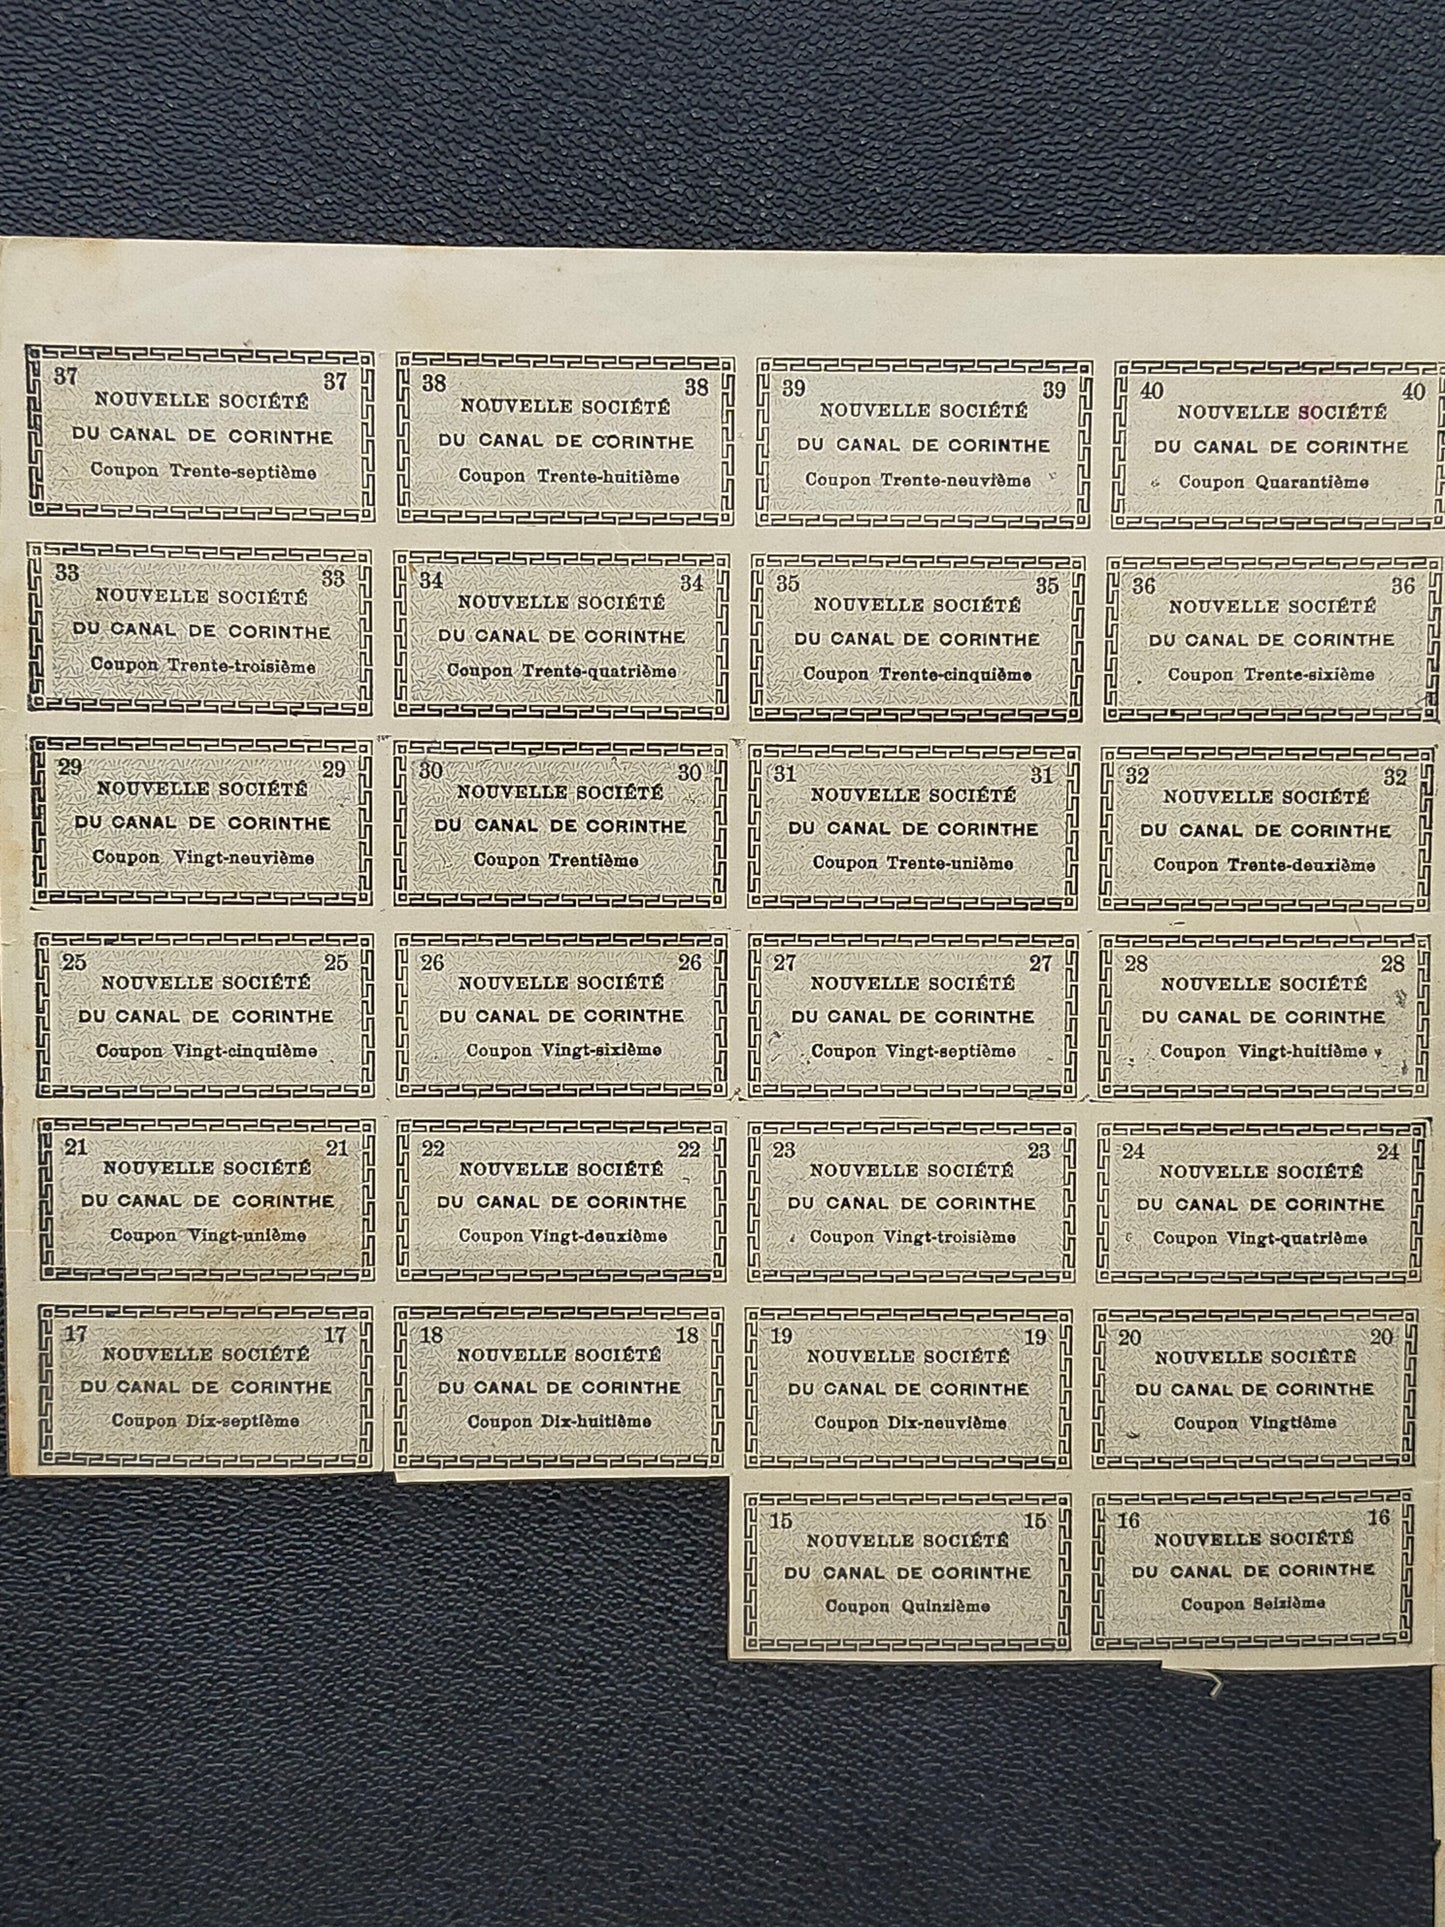 37 37
NOUVELLE SOCIÉTÉ
DU CANAL DE CORINTHE
Coupon Trente-septième
38 38
NOUVELLE SOCIÉTÉ
DU CANAL DE CORINTHE
Coupon Trente-huitième
39 39
NOUVELLE SOCIÉTÉ
DU CANAL DE CORINTHE
Coupon Trente-neuvième
40 40
NOUVELLE SOCIÉTÉ
DU CANAL DE CORINTHE
Coupon Quarantième
33 33
NOUVELLE SOCIÉTÉ
DU CANAL DE CORINTHE
Coupon Trente-troisième
34 34
NOUVELLE SOCIÉTÉ
DU CANAL DE CORINTHE
Coupon Trente-quatrième
35 35
NOUVELLE SOCIÉTÉ
DU CANAL DE CORINTHE
Coupon Trente-cinquième
36 36
NOUVELLE SOCIÉTÉ
DU CANAL DE CORINTHE
Coupon Trente-sixième
29 29
NOUVELLE SOCIÉTÉ
DU CANAL DE CORINTHE
Coupon Vingt-neuvième
30 30
NOUVELLE SOCIÉTÉ
DU CANAL DE CORINTHE
Coupon Trentième
31 31
NOUVELLE SOCIÉTÉ
DU CANAL DE CORINTHE
Coupon Trente-unième
32 32
NOUVELLE SOCIÉTÉ
DU CANAL DE CORINTHE
Coupon Trente-deuxième
25 25
NOUVELLE SOCIÉTÉ
DU CANAL DE CORINTHE
Coupon Vingt-cinquième
26 26
NOUVELLE SOCIÉTÉ
DU CANAL DE CORINTHE
Coupon Vingt-sixième
27 27
NOUVELLE SOCIÉTÉ
DU CANAL DE CORINTHE
Coupon Vingt-septième
28 28
NOUVELLE SOCIÉTÉ
DU CANAL DE CORINTHE
Coupon Vingt-huitième
21 21
NOUVELLE SOCIÉTÉ
DU CANAL DE CORINTHE
Coupon Vingt-unième
22 22
NOUVELLE SOCIÉTÉ
DU CANAL DE CORINTHE
Coupon Vingt-deuxième
23 23
NOUVELLE SOCIÉTÉ
DU CANAL DE CORINTHE
Coupon Vingt-troisième
24 24
NOUVELLE SOCIÉTÉ
DU CANAL DE CORINTHE
Coupon Vingt-quatrième
17 17
NOUVELLE SOCIÉTÉ
DU CANAL DE CORINTHE
Coupon Dix-septième
18 18
NOUVELLE SOCIÉTÉ
DU CANAL DE CORINTHE
Coupon Dix-huitième
19 19
NOUVELLE SOCIÉTÉ
DU CANAL DE CORINTHE
Coupon Dix-neuvième
20 20
NOUVELLE SOCIÉTÉ
DU CANAL DE CORINTHE
Coupon Vingtième
15 15
NOUVELLE SOCIÉTÉ
DU CANAL DE CORINTHE
Coupon Quinzième
16 16
NOUVELLE SOCIÉTÉ
DU CANAL DE CORINTHE
Coupon Seizième